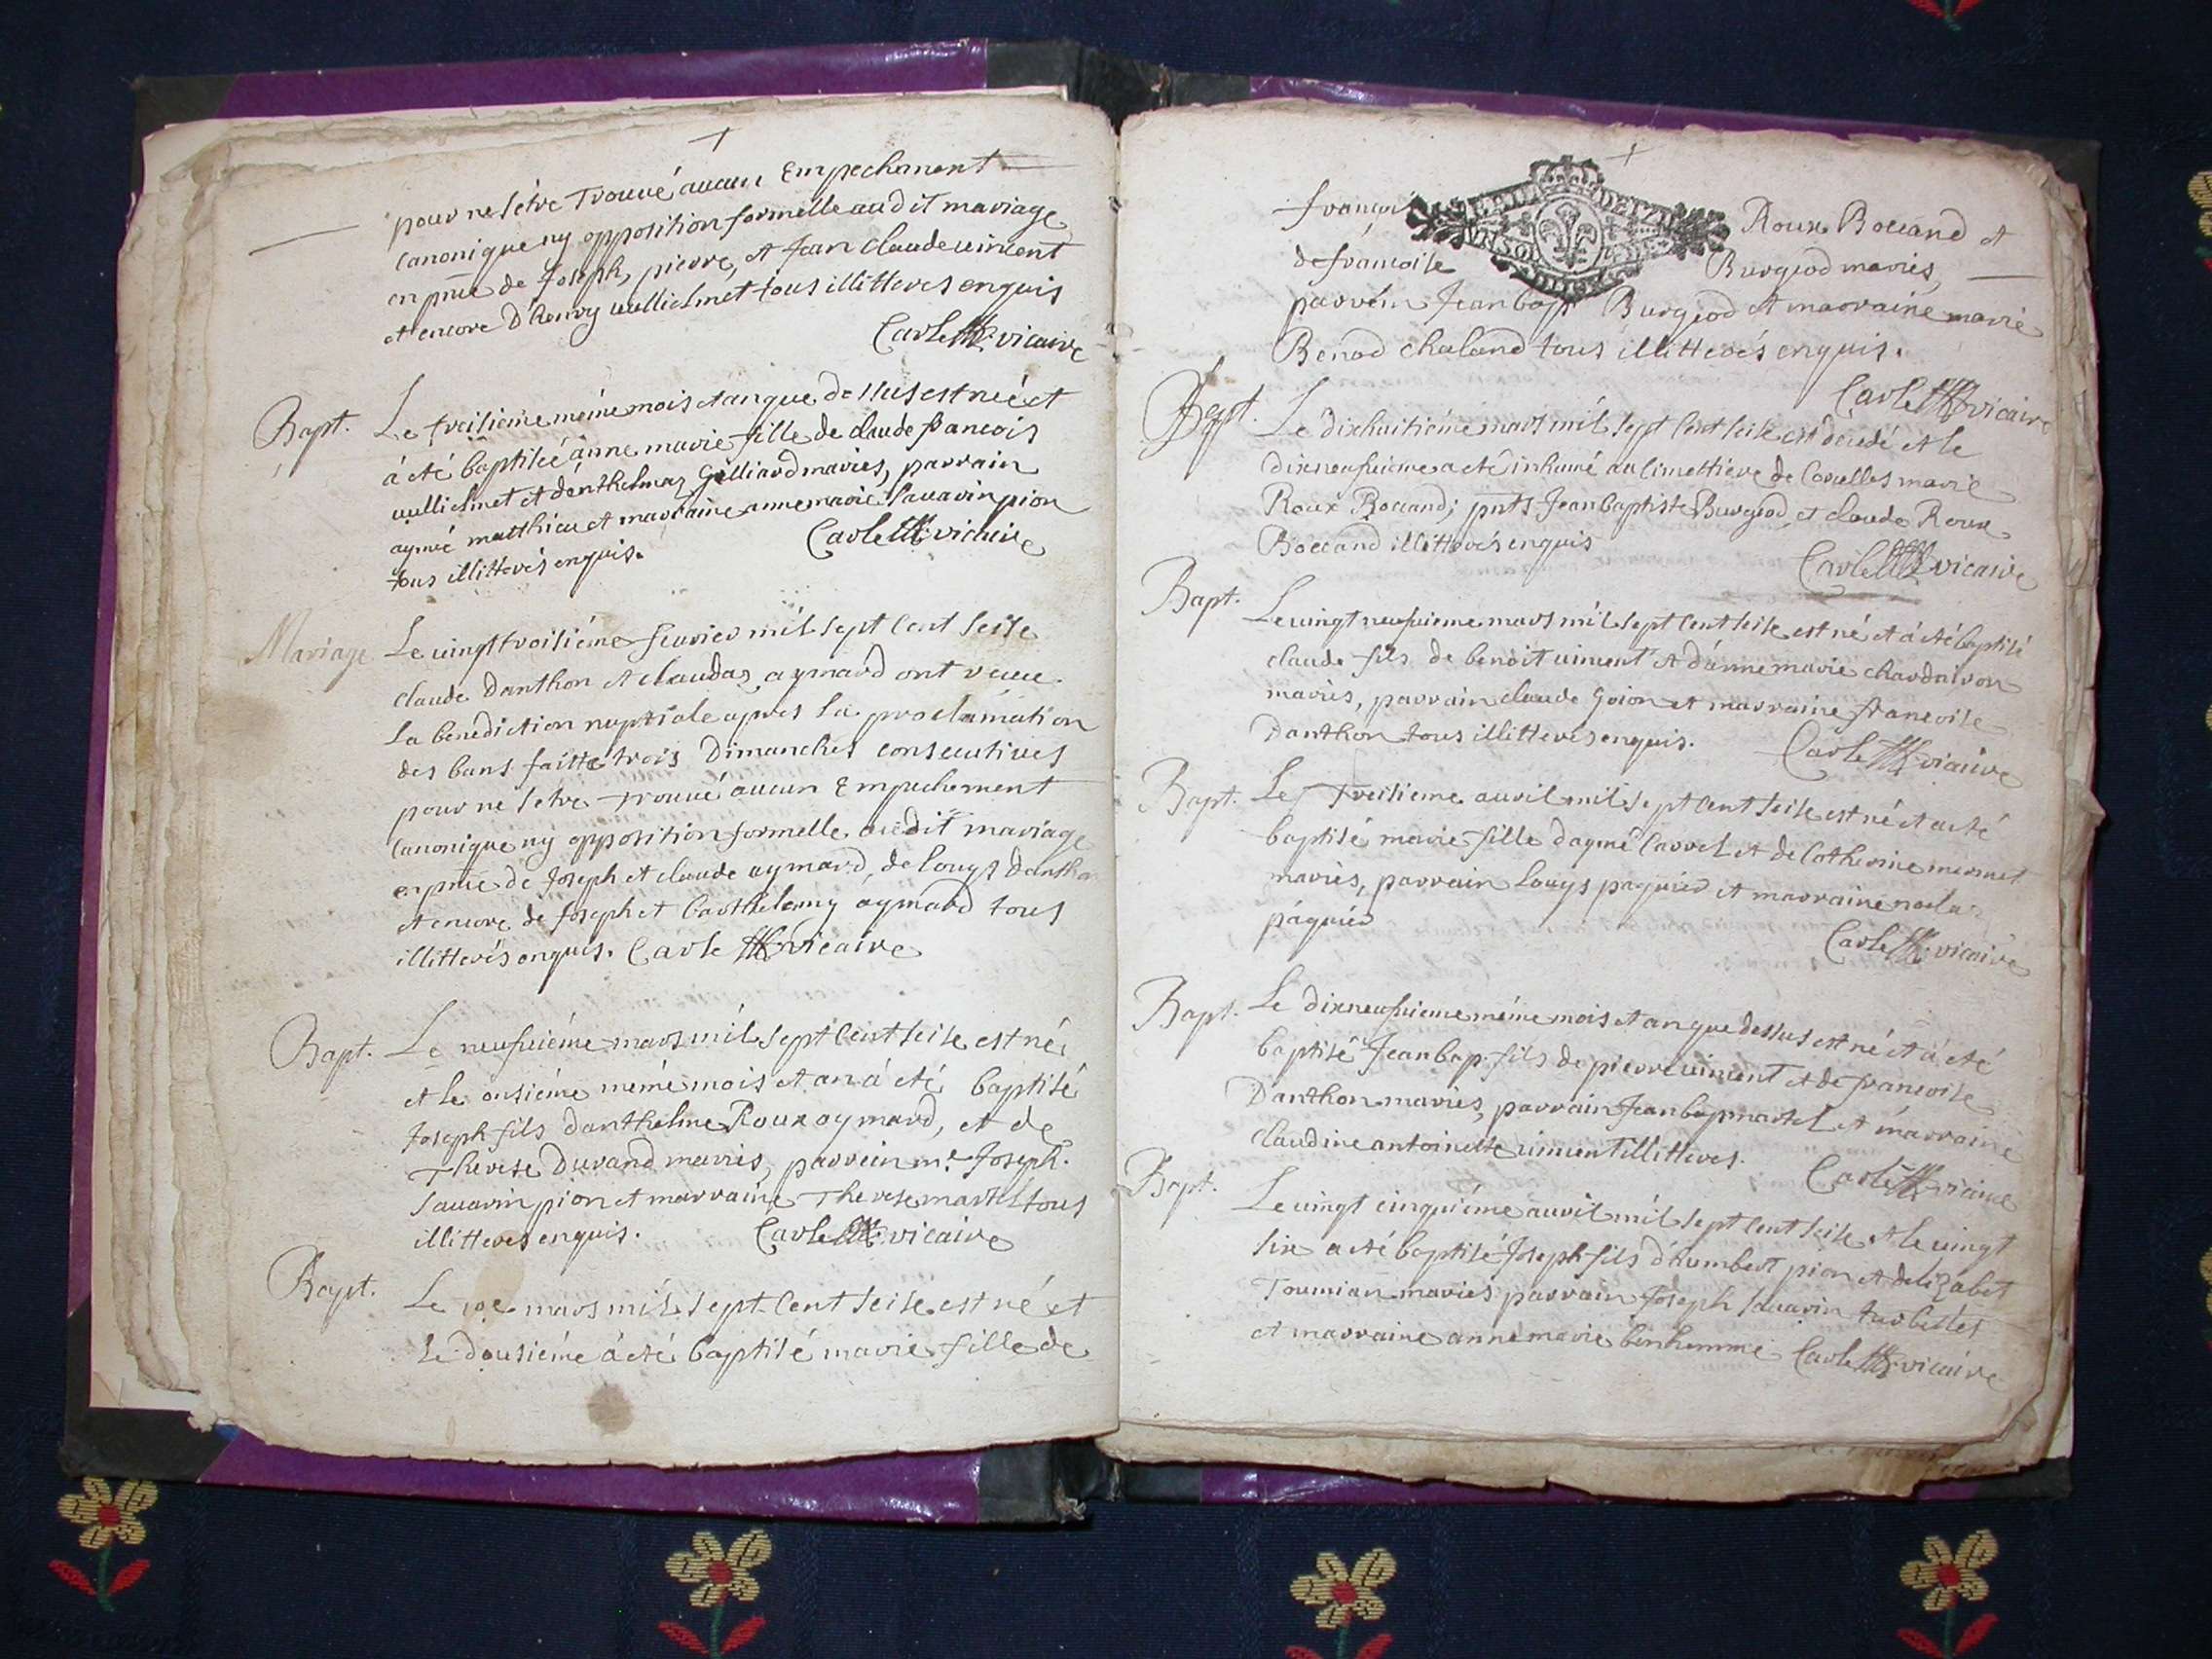 pour ne s'etre trouué aucun Empechement
canonique ny opposition formelle audit mariage
en pñce de Joseph, pierre, et Jean claude uincent
et encore d'henry uullielmet tous illitterés enquis
Carle vicaire
Bapt. Le treisieme méme mois et an que dessus est neé et
á eté baptiseé anne marie fille de claude francois
uullielmet et d'anthelmaz Gilliard mariés, parrain
aymé matthieu et marraine anne marie sauarin pion
tous illitterés enquis. Carle vicaire
Mariage Le uingt troisiéme feurier mil sept cent seise
claude Danthon et claudaz aymard ont receu
la benediction nuptiale apres la proclamation
des bans faitte trois Dimanches consecutiues
pour ne s'etre trouué aucun Empechement
canonique ny opposition formelle audit mariage
en pñce de Joseph et claude aymard, de Louys Dantho
et encore de Joseph et Barthelemy aymard tous
illitterés enquis. Carle vicaire
Bapt. Le neufuiéme mars mil sept cent seise est né
et le onsiéme méme mois et an á eté baptisé
Joseph fils d'anthelme Roux aymard, et de
Therese Durand mariés, parrain mr. Joseph
sauarin pion et marraine Therese martel tous
illitterés enquis. Carle vicaire
Bapt. Le 10e mars mil sept cent seise est né et
le dousiéme á eté baptisé marie fille de
françois Roux Boccand et
de francoise Burgiod mariés,
parrein Jean bapt Burgiod et marraine marie
Benod chaland tous illitterés enquis.
Carle vicaire
Le dixhuitiéme mars mil sept cent seise est decedé et le
dixneufuieme a eté inhumé au cimettiere de Corcelles marie
Roux Boccand; pnts Jean baptiste Burgiod et claude Roux
Boccand illitterés enquis
Carle vicaire
Bapt. Le uingt neufuieme mars mil sept cent seise est né et á eté baptisé
claude fils de benoit uincent et d'anne marie chardeiron
mariés, parrain claude Goion et marraine francoise
Danthon tous illitterés enquis. Carle vicaire
Bapt. Le Treisieme auril mil sept cent seise est né et a eté
baptisé marie fille d'aymé Carrel et de Catherine mermet
mariés, parrain Louys paquier et marraine
páquier
Carle vicaire
Bapt. Le dixneufuieme méme mois et an que dessus est né et á eté
baptisé Jean bap. fils de pierre uincent et de francoise
Danthon mariés, parrain Jean bap martel et marraine
claudine antoinette uincent illitteres.
Carle vicaire
Bapt. Le uingt cinquiéme auril mil sept cent seise et le uingt
six a eté baptisé Joseph fils d'humbert pion et d'elizabet
Toumian mariés parrain Joseph sauarin tarbelles
et marraine anne marie bonhomme Carle vicaire